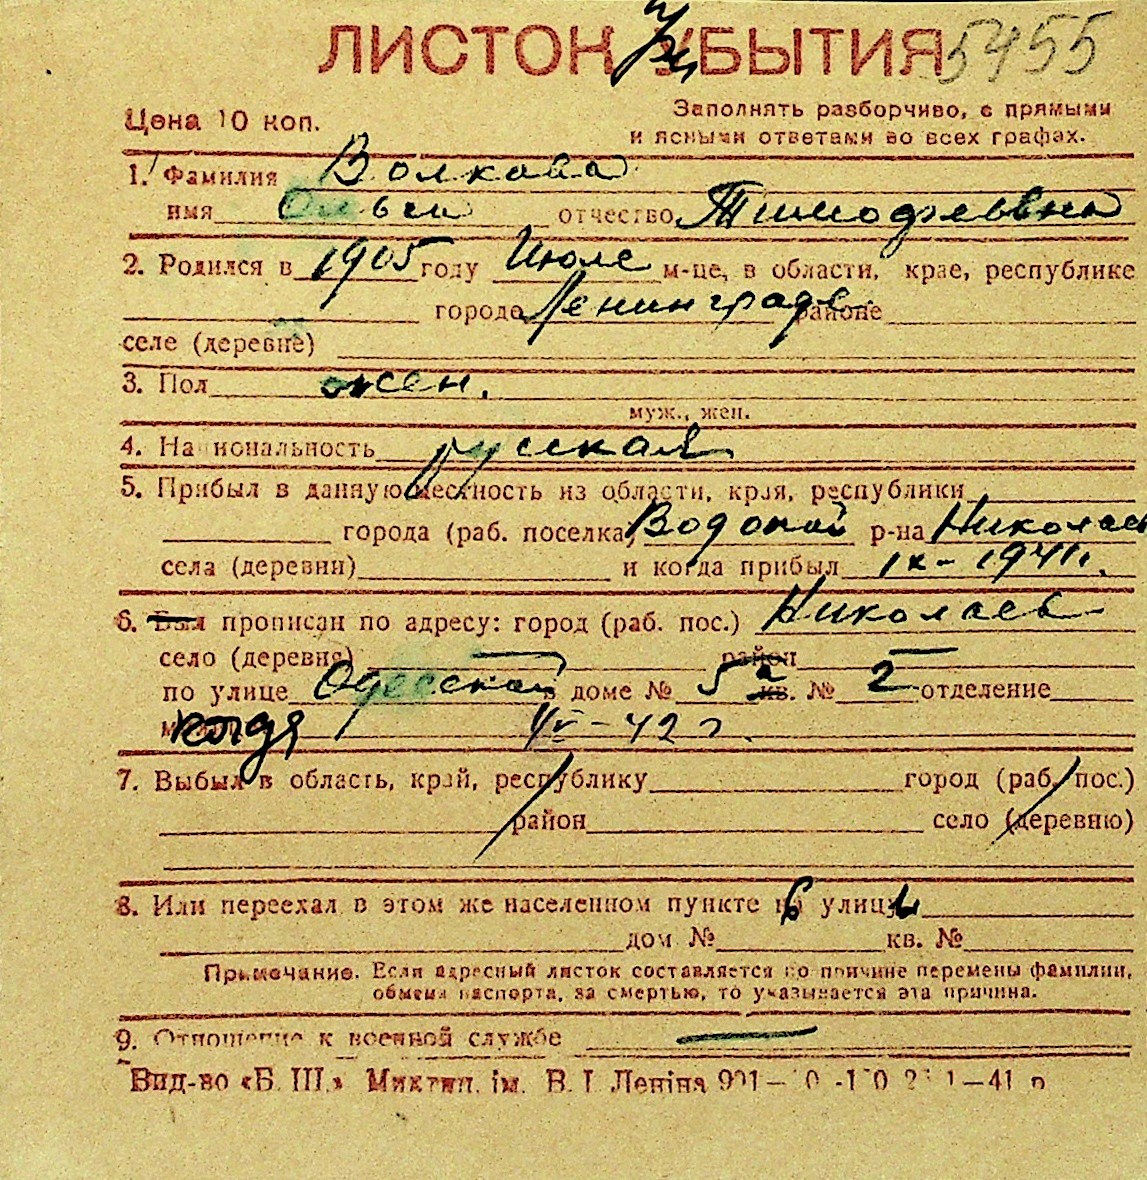 ЛИСТОК УБЫТИЯ 5455
Цена 10 коп.
Заполнять разборчиво, с прямыми
и ясными ответами во всех графах.
1. Фамилия Волкова
имя Ольги отчество Тимофеевны
2. Родился в 1905 году Июле м-це, в области, крае, республике
городе Ленинграде районе
селе (деревне)
3. Пол жен.
муж., жен.
4. Национальность русская
5. Прибыл в данную местность из области, края, республики
города (раб. поселка) Водопой р-на Николаев
села (деревни) и когда прибыл IX – 1941 г.
6. Был прописан по адресу: город (раб. пос.) Николаев
село (деревня) район
по улице Одесской в доме № 5а кв. № 2 отделение
когда – 42 г.
7. Выбыл в область, край, республику город (раб. пос.)
район село (деревню)
8. Или переехал в этом же населенном пункте улицы
дом № кв. №
Примечание. Если адресный листок составляется по причине перемены фамилии,
обмена паспорта, за смертью, то указывается эта причина.
9. Отношение к военной службе
Вид-во «Б. Ш.» Миктип. ім. В. І. Леніна